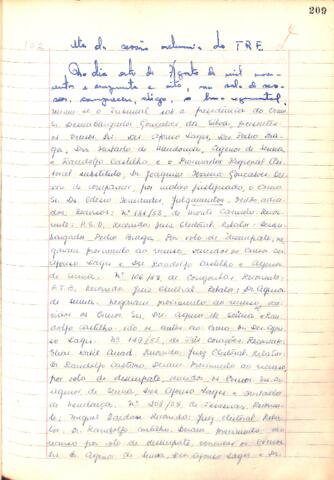 209
102
Ata da sessão ordinaria do TRE
Ao dia sete de Agosto de mil nove-
centos e cincoenta e oito, na sala de ses-
sões, compareceu, digo, a hora regimental,
reuniu-se o Tribunal sob a presidência do Exmo
Sr. Desembargador Gonçalves da Silva, presentes
os Exmos Srs. Des. Afonso Lages, Des. Pedro Bra-
ga, Drs. Furtado de Mendonça, Agenor de Senna
e Randolfo Castilho e o Procurador Regional Elei-
toral substituto, Dr. Joaquim Ferreira Gonçalves. Dei-
xou de comparecer, por motivo justificado, o Exmo
Sr. Dr. Julgamentos:
Recursos: Nº 131/58, de Monte Carmelo. Recor-
rente: P.S.D. Recorrido: Juiz Eleitoral. Relator: Desem-
bargador Pedro Braga. Por voto de desempate, ne-
garam provimento ao recurso, vencidos os Exmos Srs.
Afonso Lages e Drs. Randolfo Castilho e Agenor
de Senna. Nº 106/58 de Congonhas. Recorrente:
P.T.B. Recorrido: Juiz Eleitoral. Relator: Dr. Agenor
de Senna. Negaram provimento ao recurso,
os Exmos Srs. Drs. Agenor de Senna e Ran-
dolfo Castilho Des. Afon-
so Lages. Nº 149/58, de Três Corações. Recorrente:
Elias Recorrido: Juiz Eleitoral. Relator:
Dr. Randolfo Castilho. Deram provimento ao recurso,
por voto de desempate, vencidos os Exmos Srs. Drs.
Agenor de Senna, Des. Afonso Lages e Furtado
de Mendonça. Nº 209/58, de Recorren-
te: Miguel Recorrido: Juiz Eleitoral. Rela-
tor: Dr. Randolfo Castilho. Deram provimento, ao
recurso por voto de desempate, vencidos os Exmos
Srs. Dr. Agenor de Senna, Des. Afonso Lages e Dr.